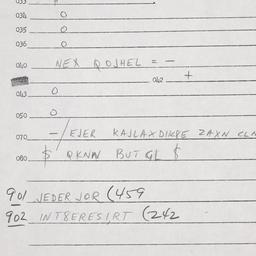 033
034 0
035 0
036 0
040 NEX QOJHEL = -
042 +
043 0
050 0
070 -/EJER KAJLAXDIKPE ZAXN CLN
080 $ QKNW BUT GL $
901 JEDER JOR (459
902 INT8ERESIRT (242